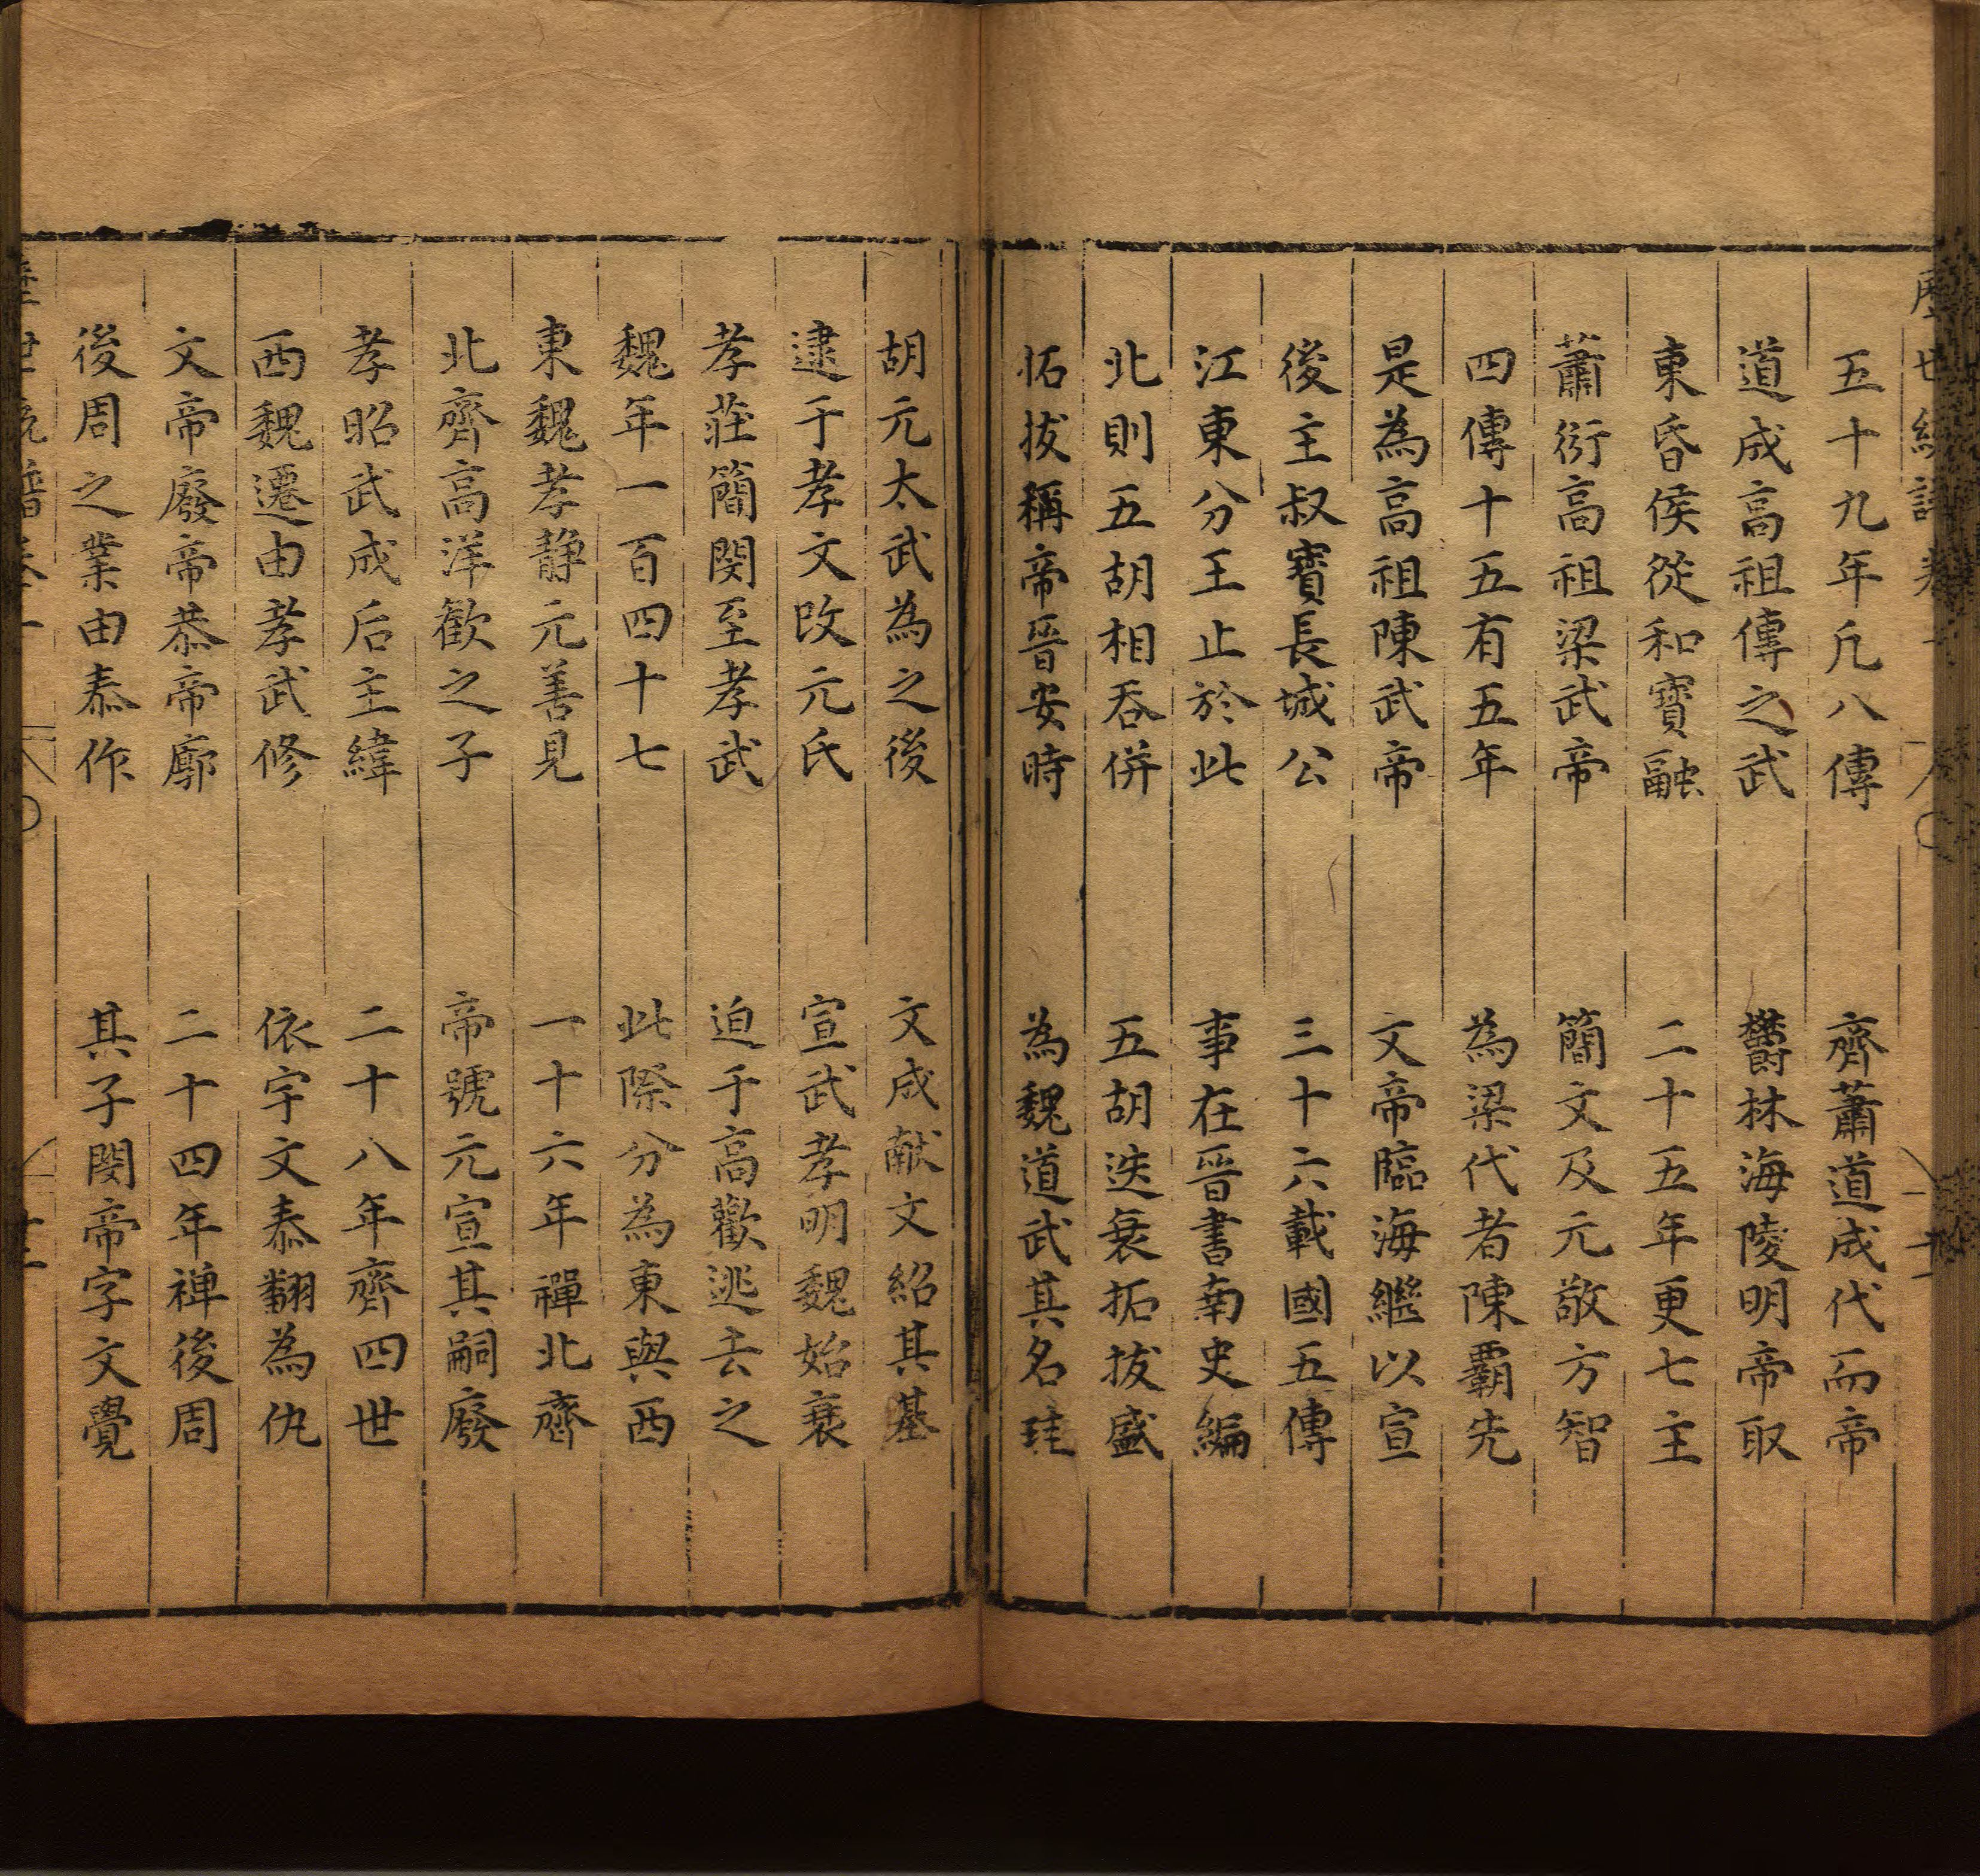 五十九年凢八傳　齊蕭道成代而帝
道成高祖傳之武　欝林海陵明帝取
東昏侯從和寶融　二十五年更七主
蕭衍高祖梁武帝　簡文及元敬方智
四傳十五有五年　為梁代者陳霸先
是為高祖陳武帝　文帝臨海繼以宣
後主叔寶長城公　三十六載國五傳
江東分王止於此　事在晉書南史編
北則五胡相吞併　五胡迭衰拓拔盛
拓拔稱帝晉安時　為魏道武其名珪
胡元太武為之後　文成献文紹其基
逮于孝文改元氏　宣武孝明魏始衰
孝莊簡閔至孝武　迫于高歡逃去之
魏年一百四十七　此際分為東與西
東魏孝静元善見　一十六年禪北齊
北齊高洋歡之子　帝號元宣其嗣廢
孝昭武成后主緯　二十八年齊四世
西魏遷由孝武修　依宇文泰翻為仇
文帝廢帝恭帝廓　二十四年禅後周
後周之業由泰作　其子閔帝字文覺